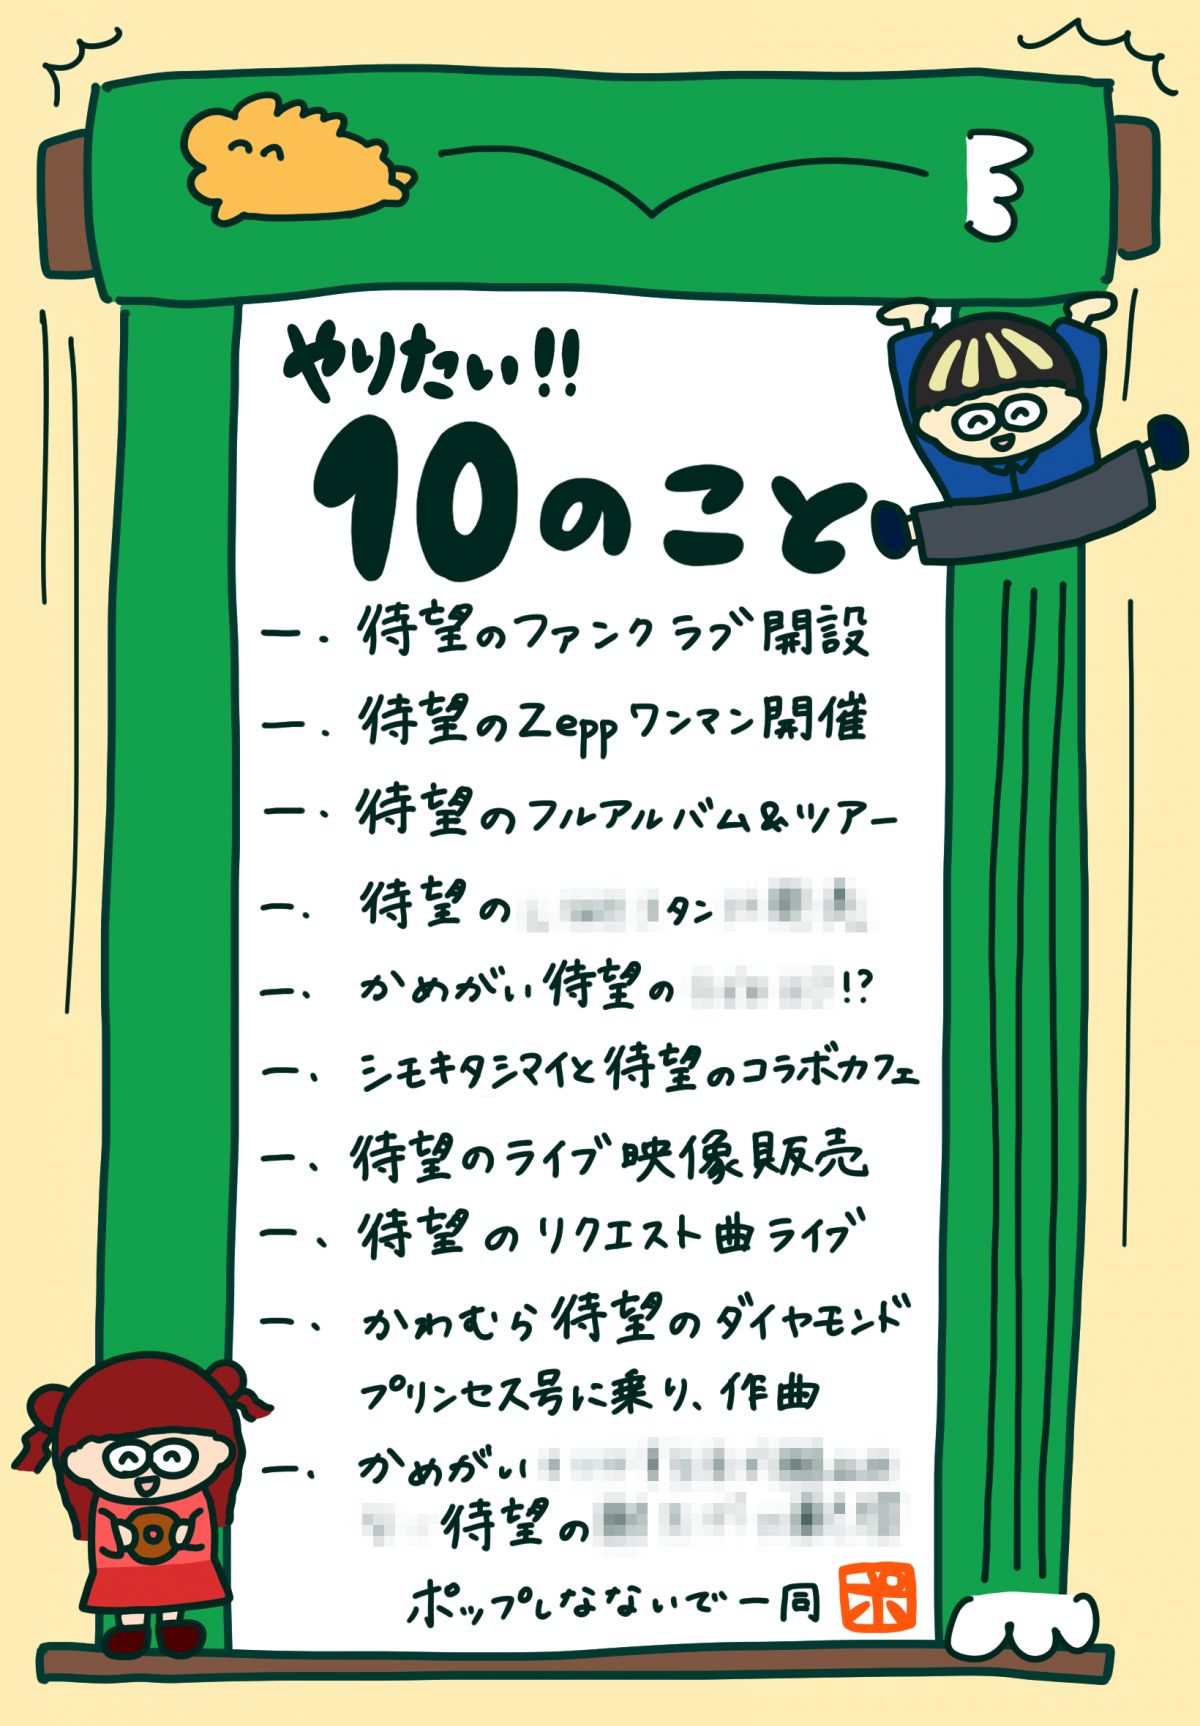 やりたい!!
10のこと
一.待望のファンクラブ開設
一.待望のZeppワンマン開催
一.待望のフルアルバム&ツアー
一.待望の タン
一.かめがい待望の !?
一.シモキタシマイと待望のコラボカフェ
一、待望のライブ映像販売
一、待望のリクエスト曲ライブ
一.かわむら待望のダイヤモンド
プリンセス号に乗り、作曲
一.かめがい
待望の
ポップしなないで一同
ポ